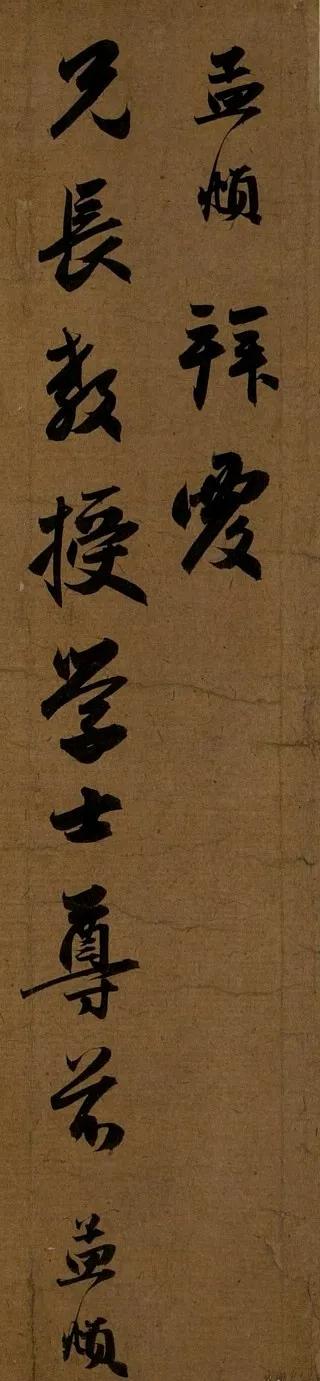 孟頫拜覆
兄長教授學士尊前孟頫